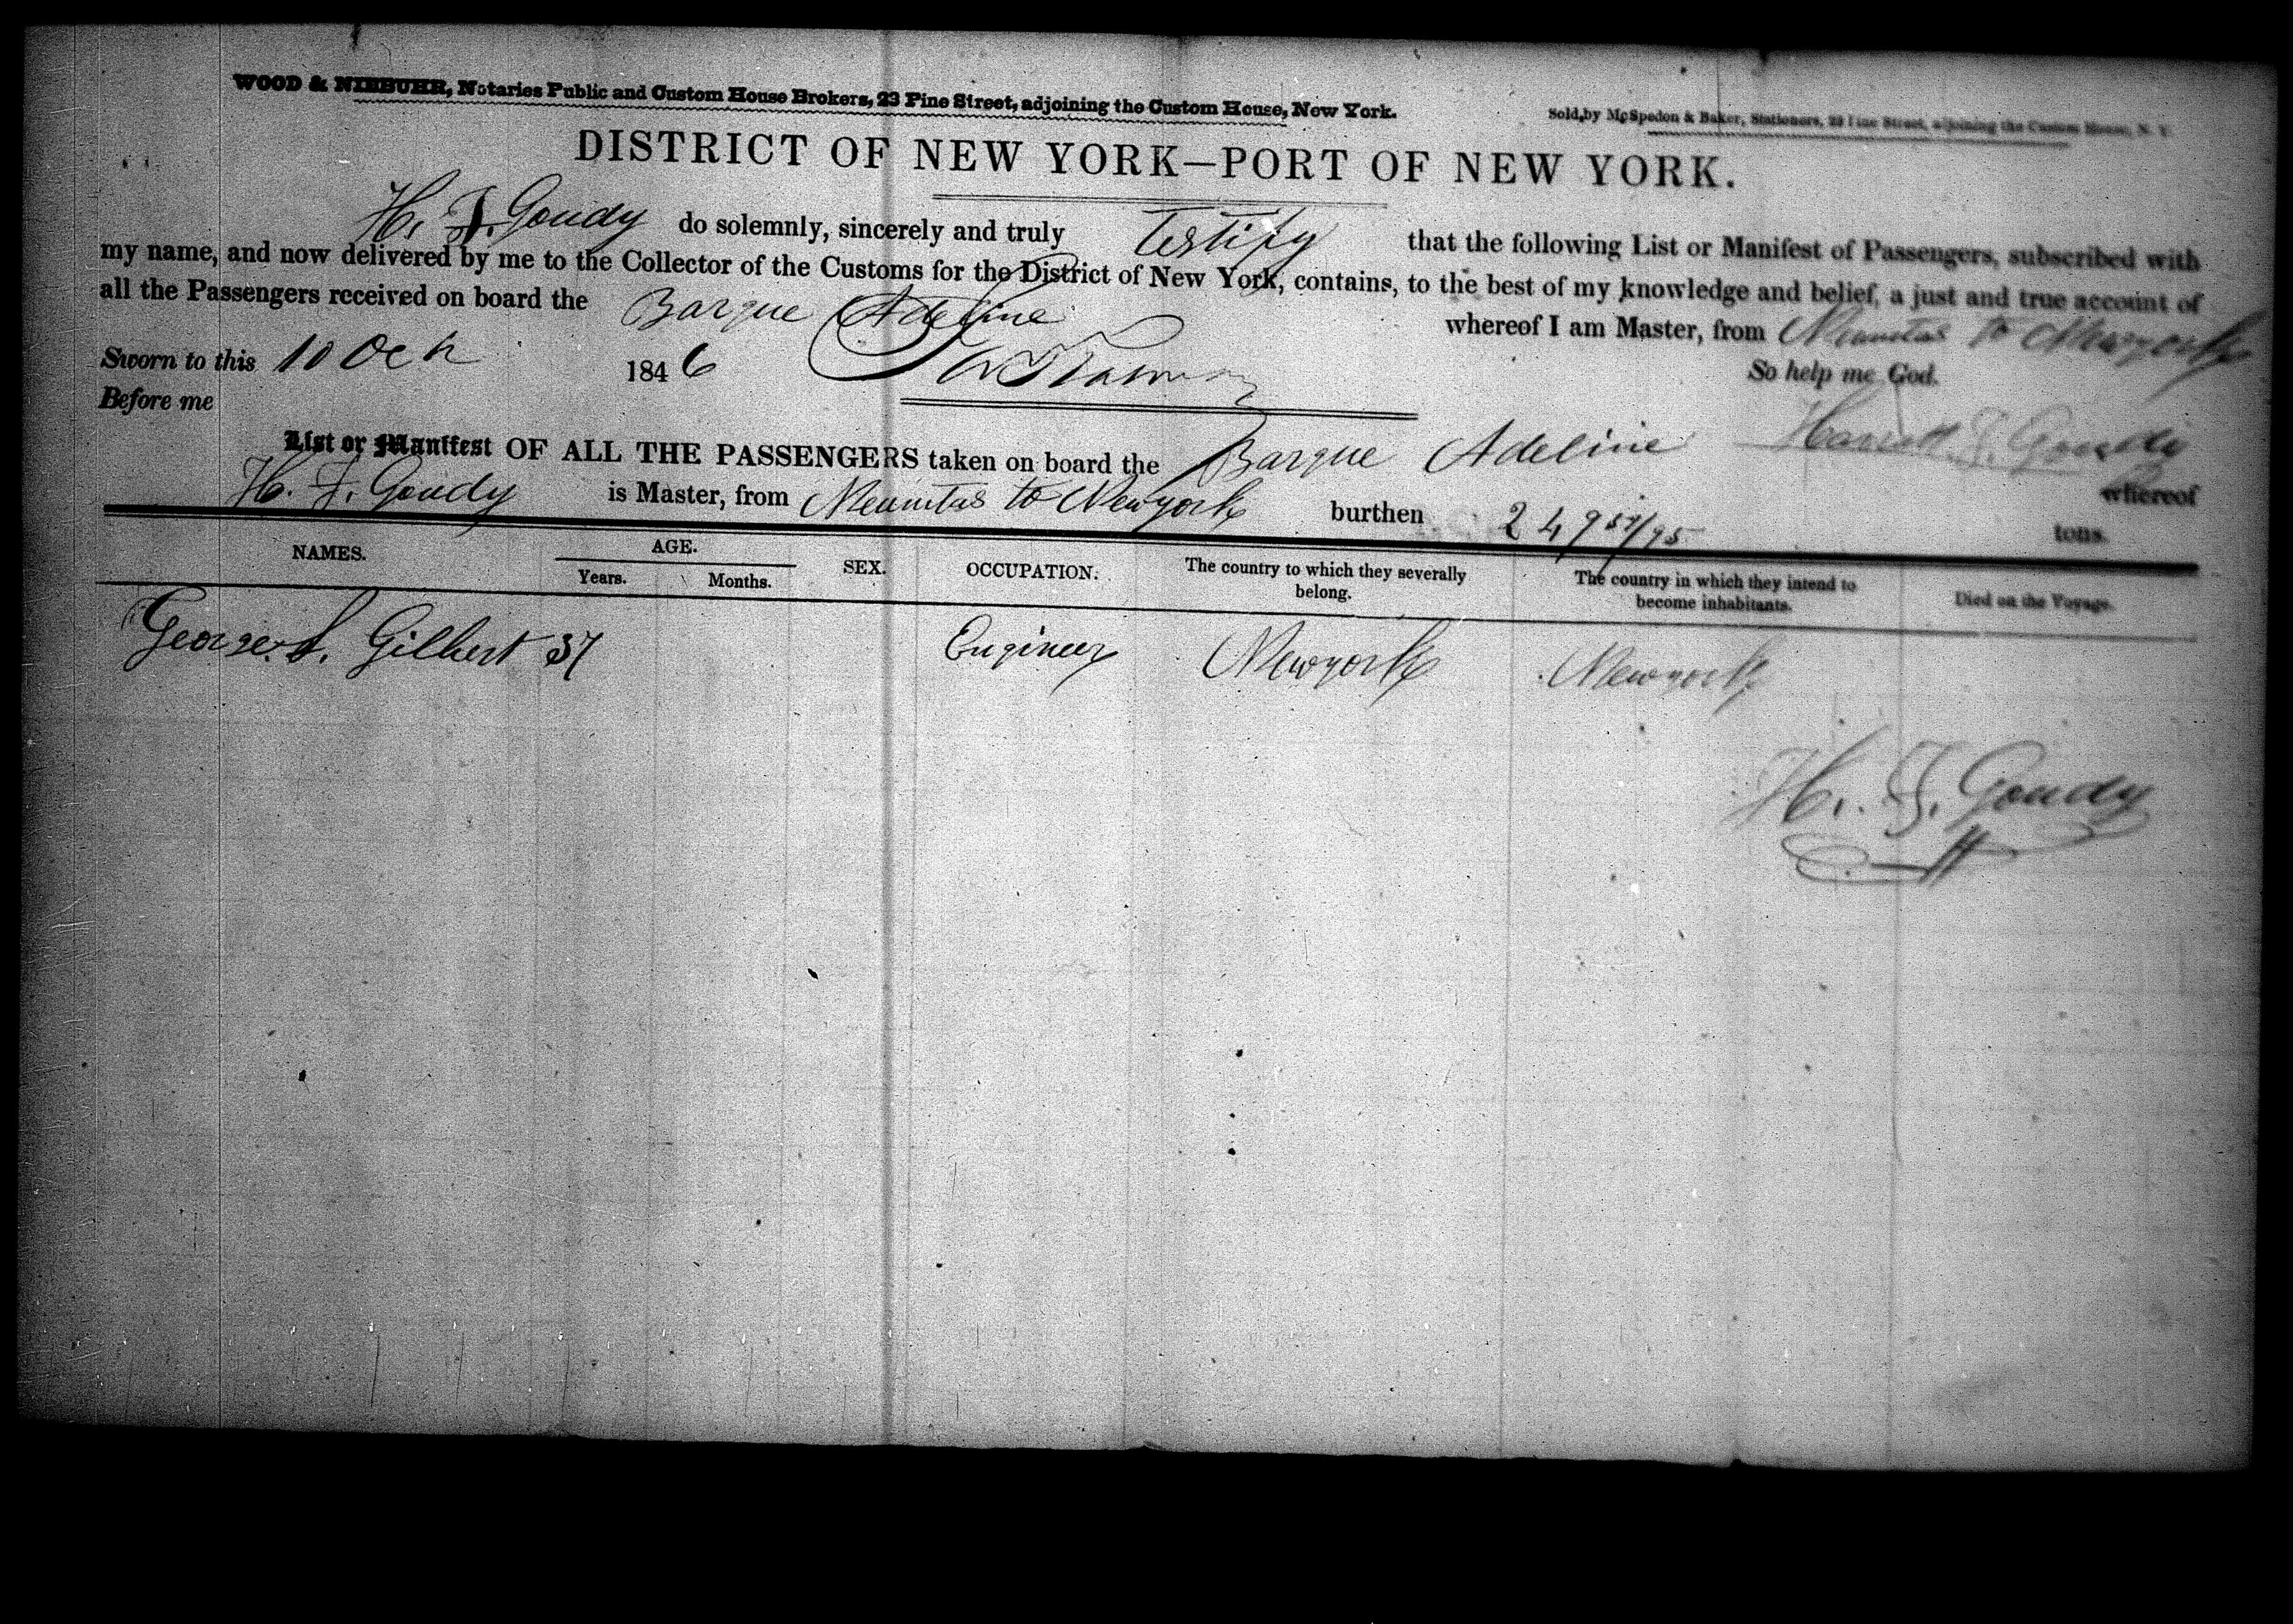 WOOD & NIEBUHR, Notaries Public and Custom House Brokers, 23 Pine Street, adjoining the Custom House, New York.
Sold by McSpedon & Baker, Stationers, 23 Pine Street, adjoining the Custom House, N. Y.
DISTRICT OF NEW YORK—PORT OF NEW YORK.
H. F. Goudy do solemnly, sincerely and truly Testify that the following List or Manifest of Passengers, subscribed with
my name, and now delivered by me to the Collector of the Customs for the District of New York, contains, to the best of my knowledge and belief, a just and true account of
all the Passengers received on board the Barque Adeline whereof I am Master, from Neuvitas to Newyork
Sworn to this 10 Oct 1846 So help me God.
Before me
Goudy
List or Manifest OF ALL THE PASSENGERS taken on board the Barque Adeline whereof
H. F. Goudy is Master, from Neuvitas to Newyork burthen 249 57/95 tons.
NAMES. AGE. SEX. OCCUPATION. The country to which they severally belong. The country in which they intend to become inhabitants. Died on the Voyage.
Years. Months.
George S. Gilbert 37 Engineer Newyork Newyork
H. F. Goudy